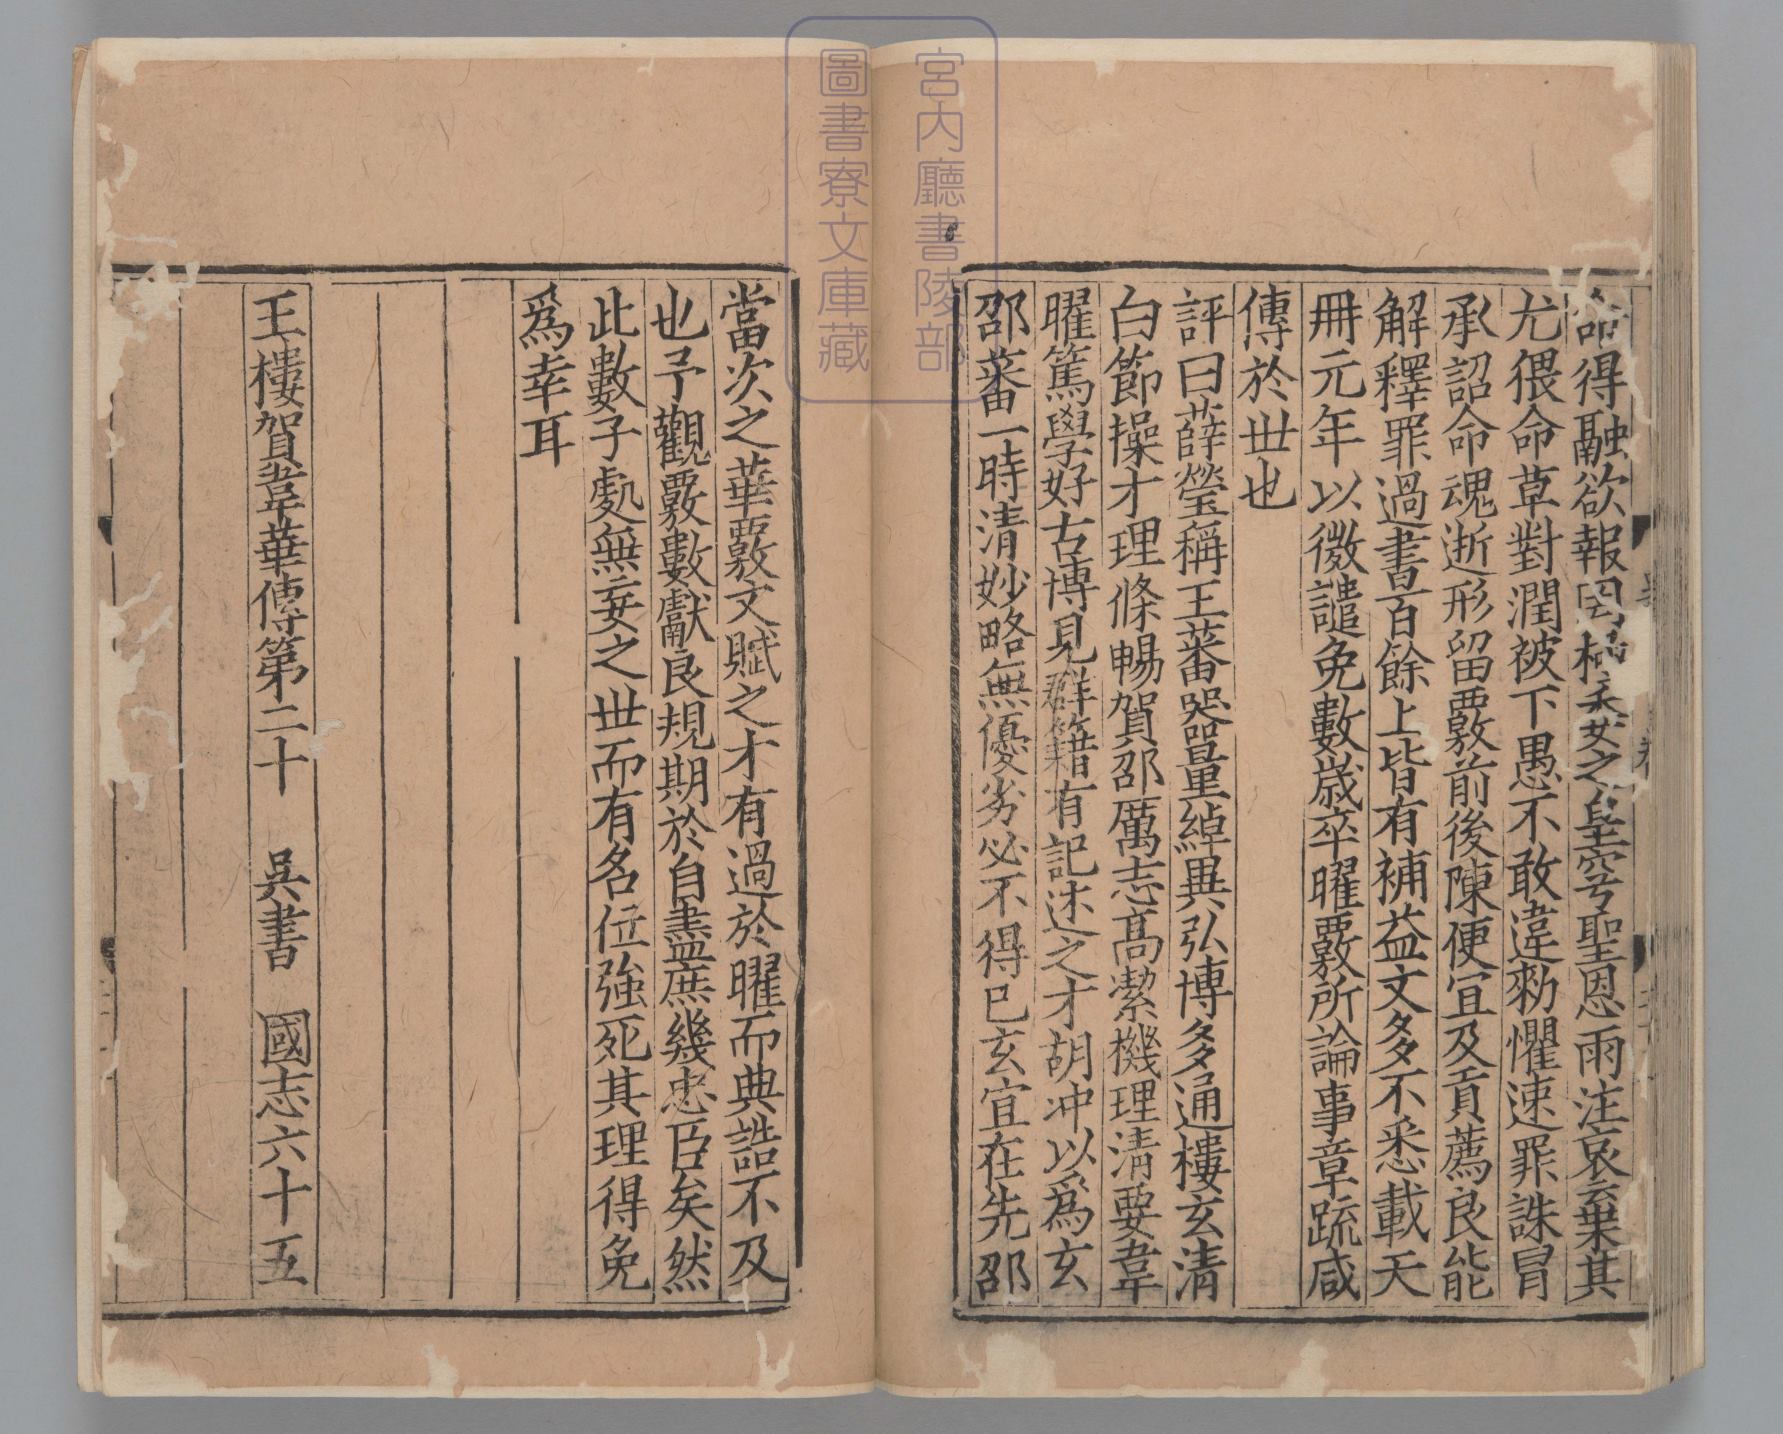 命得融欲報罔極委之皇穹聖恩雨注哀棄其
尤猥命草對潤被下愚不敢違勑懼速罪誅冒
承詔命魂逝形留覈前後陳便宜及貢薦良能
解釋罪過書百餘上皆有補益文多不悉載天
冊元年以微譴免數歲卒曜覈所論事章疏咸
傳於世也
評曰薛瑩稱王蕃器量綽異弘博多通樓玄清
白節操才理條暢賀邵厲志高潔機理清要韋
曜篤學好古博見群籍有記述之才胡冲以爲玄
邵蕃一時清妙略無優劣必不得已玄宜在先邵
當次之華覈文賦之才有過於曜而典誥不及
也予觀覈數獻良規期於自盡庶幾忠臣矣然
此數子處無妄之世而有名位強死其理得免
爲幸耳
王樓賀韋華傳第二十 吳書 國志六十五
宮内廳書陵部
圖書寮文庫藏